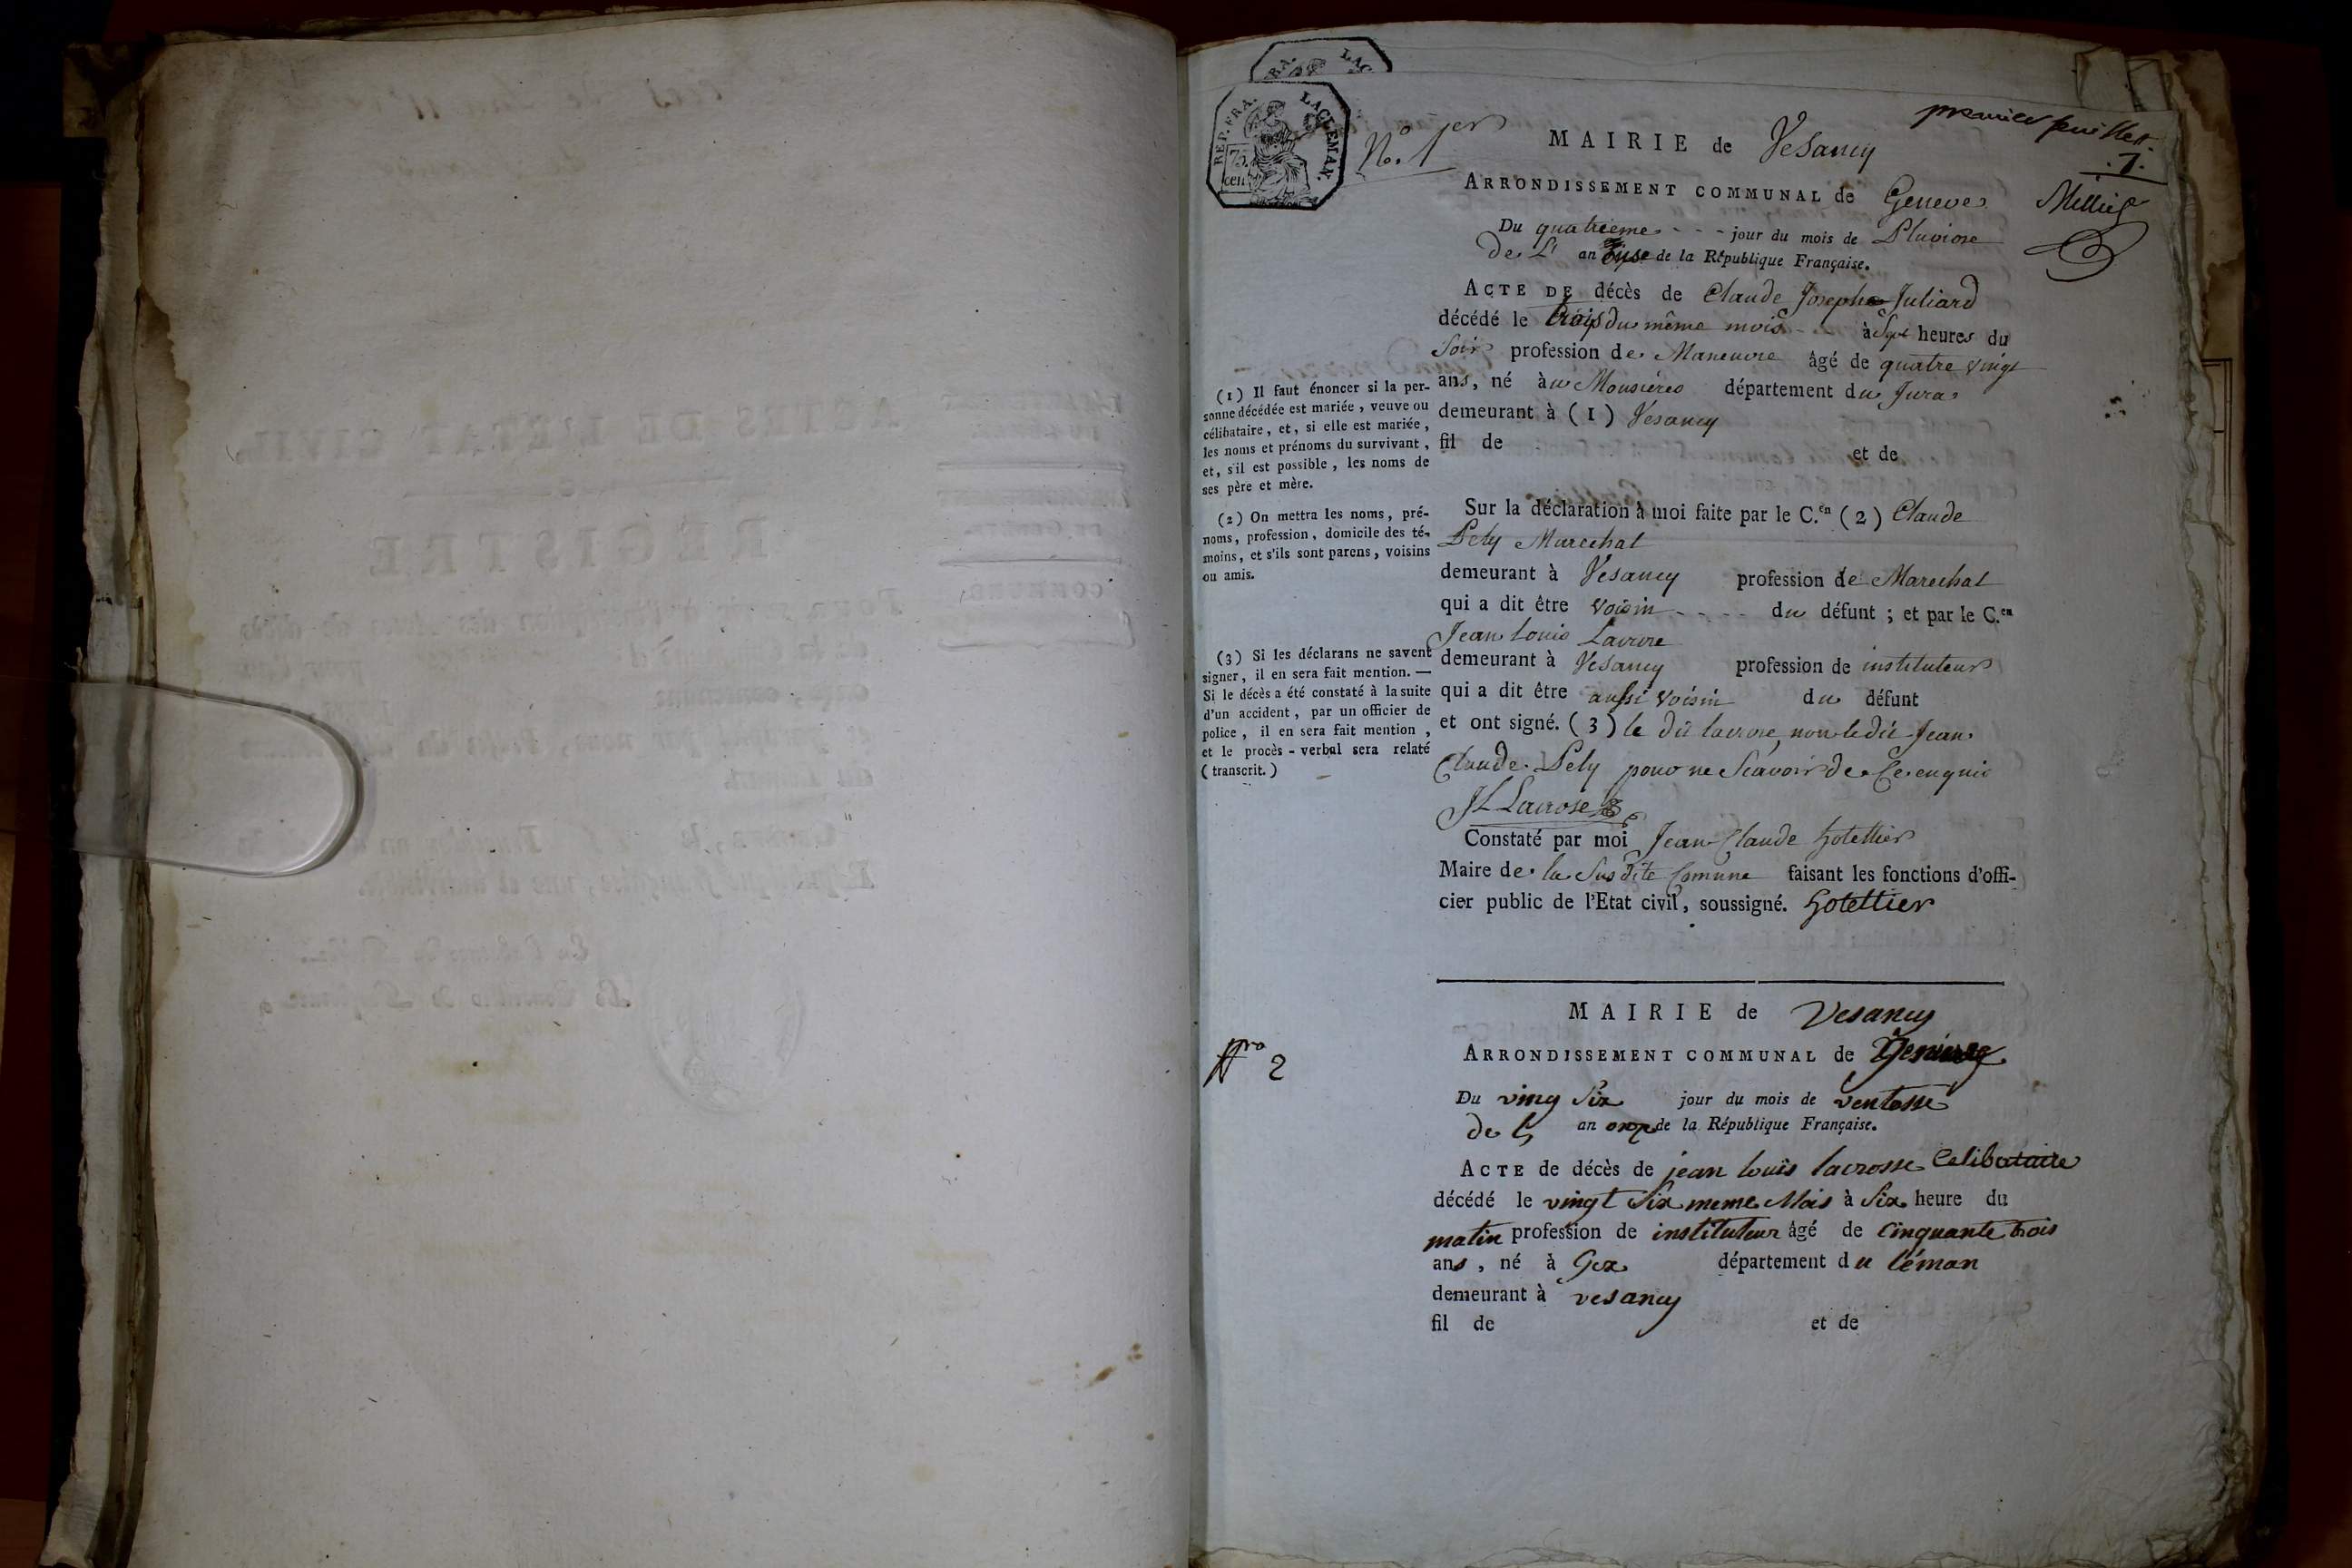 premier feuillet
.1.
REP. FRA. LAC LEMAN.
75.
cen
N.º 1er
MAIRIE de Vesancy
ARRONDISSEMENT COMMUNAL de Geneve
Du quatrieme - - - jour du mois de Pluviose
de L' an de la République Française.
ACTE DE décès de Claude Joseph Juliard
décédé le trois du même mois - à Sept heures du
Soir profession de Maneuvre âgé de quatre vingt
ans, né au Mousieres département du Jura
demeurant à (1) Vesancy
fil de et de
Sur la déclaration à moi faite par le C.en (2) Claude
Pely Marechal
demeurant à Vesancy profession de Marechal
qui a dit être voisin - - - - du défunt ; et par le C.en
Jean Louis Lacrore
demeurant à Vesancy profession de instituteur
qui a dit être aussi voisin du défunt
et ont signé. (3) le dit lacrore, non le dit Jean
Claude Pely pour ne Scavoir de Ce enquis
JL Lacrose
Constaté par moi Jean Claude hotellier
Maire de la Susdite Comune faisant les fonctions d'offi-
cier public de l'Etat civil, soussigné. hotellier
(1) Il faut énoncer si la per-
sonne décédée est mariée, veuve ou
célibataire, et, si elle est mariée,
les noms et prénoms du survivant,
et, s'il est possible, les noms de
ses père et mère.
(2) On mettra les noms, pré-
noms, profession, domicile des té-
moins, et s'ils sont parens, voisins
ou amis.
(3) Si les déclarans ne savent
signer, il en sera fait mention. —
Si le décès a été constaté à la suite
d'un accident, par un officier de
police, il en sera fait mention,
et le procès-verbal sera relaté
(transcrit.)
Nro 2
MAIRIE de Vesancy
ARRONDISSEMENT COMMUNAL de
Du ving Six jour du mois de ventosse
de L an onze de la République Française.
ACTE de décès de jean louis lacrosse Celibataire
décédé le vingt Six meme Mois à Six heure du
matin profession de instituteur âgé de Cinquante trois
ans, né à Gex département du léman
demeurant à vesancy
fil de et de